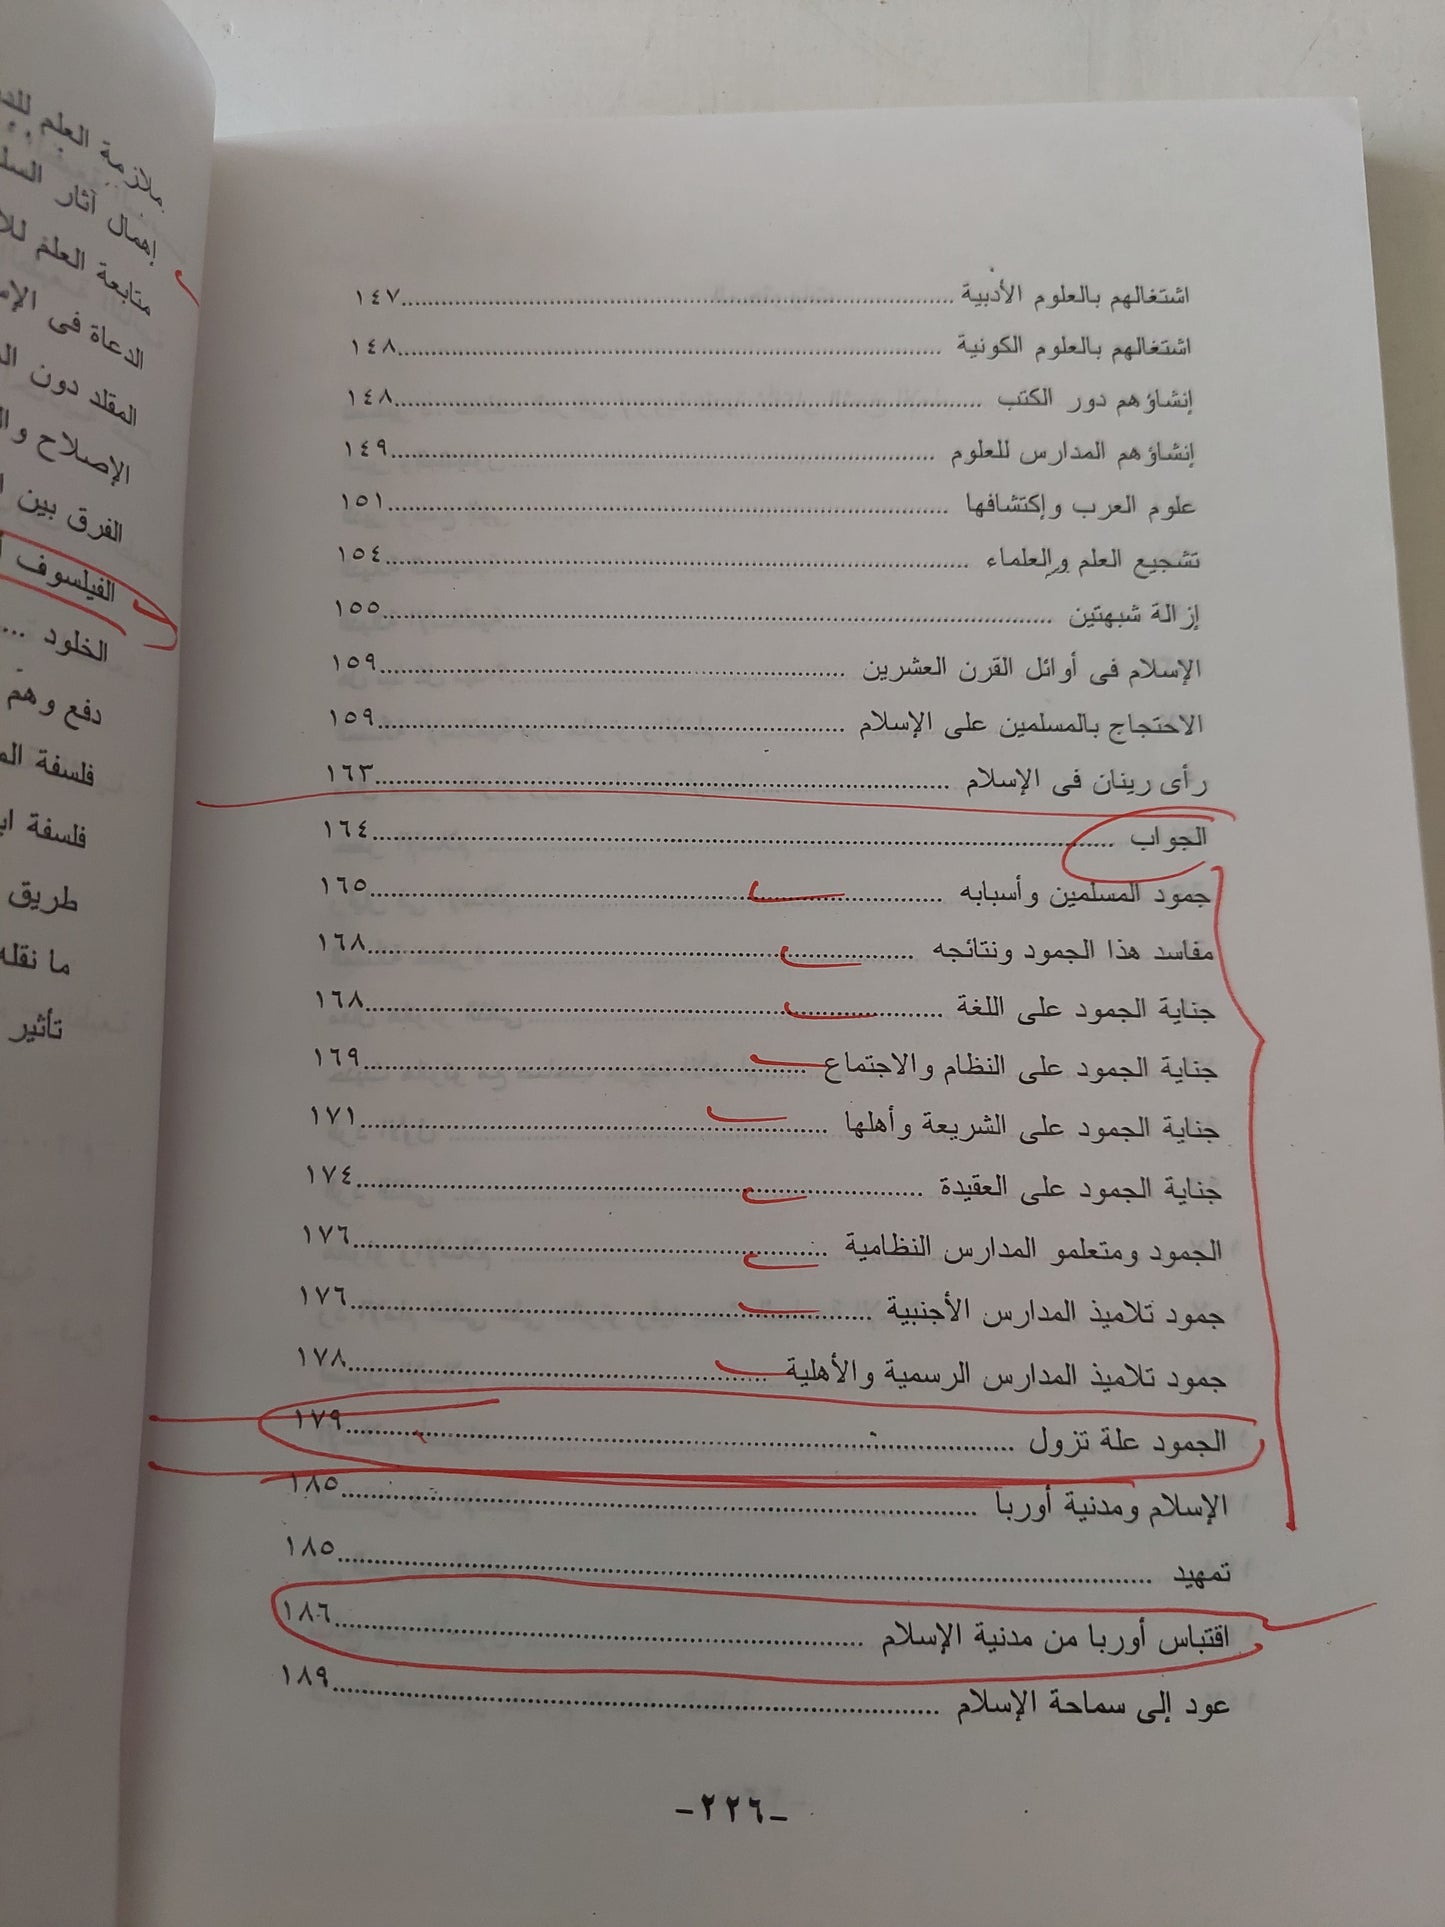 اشتغالهم بالعلوم الأدبية ........ ١٤٧
اشتغالهم بالعلوم الكونية ........ ١٤٨
إنشاؤهم دور الكتب ........ ١٤٨
إنشاؤهم المدارس للعلوم ........ ١٤٩
علوم العرب وإكتشافها ........ ١٥١
تشجيع العلم والعلماء ........ ١٥٤
إزالة شبهتين ........ ١٥٥
الإسلام فى أوائل القرن العشرين ........ ١٥٩
الاحتجاج بالمسلمين على الإسلام ........ ١٥٩
رأى رينان فى الإسلام ........ ١٦٣
الجواب ........ ١٦٤
جمود المسلمين وأسبابه ........ ١٦٥
مفاسد هذا الجمود ونتائجه ........ ١٦٨
جناية الجمود على اللغة ........ ١٦٨
جناية الجمود على النظام والاجتماع ........ ١٦٩
جناية الجمود على الشريعة وأهلها ........ ١٧١
جناية الجمود على العقيدة ........ ١٧٤
الجمود ومتعلمو المدارس النظامية ........ ١٧٦
جمود تلاميذ المدارس الأجنبية ........ ١٧٦
جمود تلاميذ المدارس الرسمية والأهلية ........ ١٧٨
الجمود علة تزول ........ ١٧٩
الإسلام ومدنية أوربا ........ ١٨٥
تمهيد ........ ١٨٥
اقتباس أوربا من مدنية الإسلام ........ ١٨٦
عود إلى سماحة الإسلام ........ ١٨٩
-٢٢٦-
ملازمة العلم
إهمال آثار
متابعة العلم
الدعاة فى
المقلد دون
الإصلاح
الفرق بين
الفيلسوف
الخلود ...
دفع وهم
فلسفة
فلسفة
طريق
ما نقله
تأثير